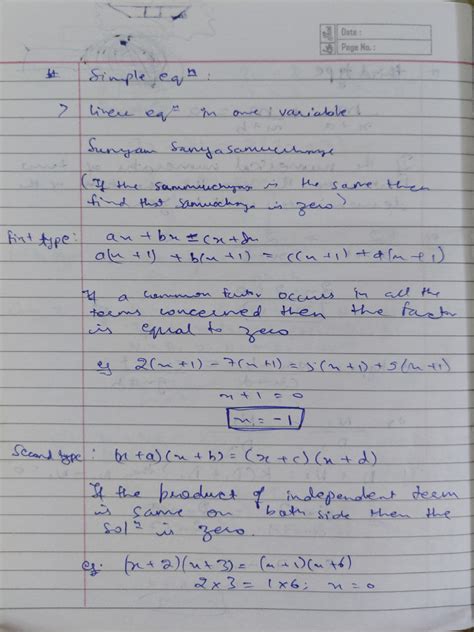 Date :
Page No. :
Simple eqⁿ :
> Linear eqⁿ in one variable
Sunyam Samyasamuccaye
(If the samuccaya is the same then
find that samuccaya is zero)
First type: ax + bx = cx + dx
a(x+1) + b(x+1) = c(x+1) + d(x+1)
If a common factor occurs in all the
terms concerned then the factor
is equal to zero
eg 2(x+1) - 7(x+1) = 3(x+1) + 5(x+1)
x + 1 = 0
x = -1
Second type: (x+a)(x+b) = (x+c)(x+d)
If the product of independent term
is same on both side then the
solⁿ is zero.
eg. (x+2)(x+3) = (x+1)(x+6)
2x3 = 1x6; x = 0